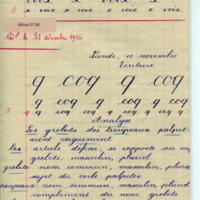 voix x voix x voix
x v x v x voix x voix
élève 0138
le 11 décembre 1916
Lundi, 10 novembre
Ecriture
q coq q coq
q coq q coq q coq
q coq q coq q coq q coq
Analyse
Les grelots des troupeaux palpitent vaguement
Les article défini, se rapporte au mot
grelots, masculin, pluriel
grelots nom commun, masculin, pluriel
sujet du verbe palpiter
troupeaux nom commun, masculin, pluriel
complément du nom